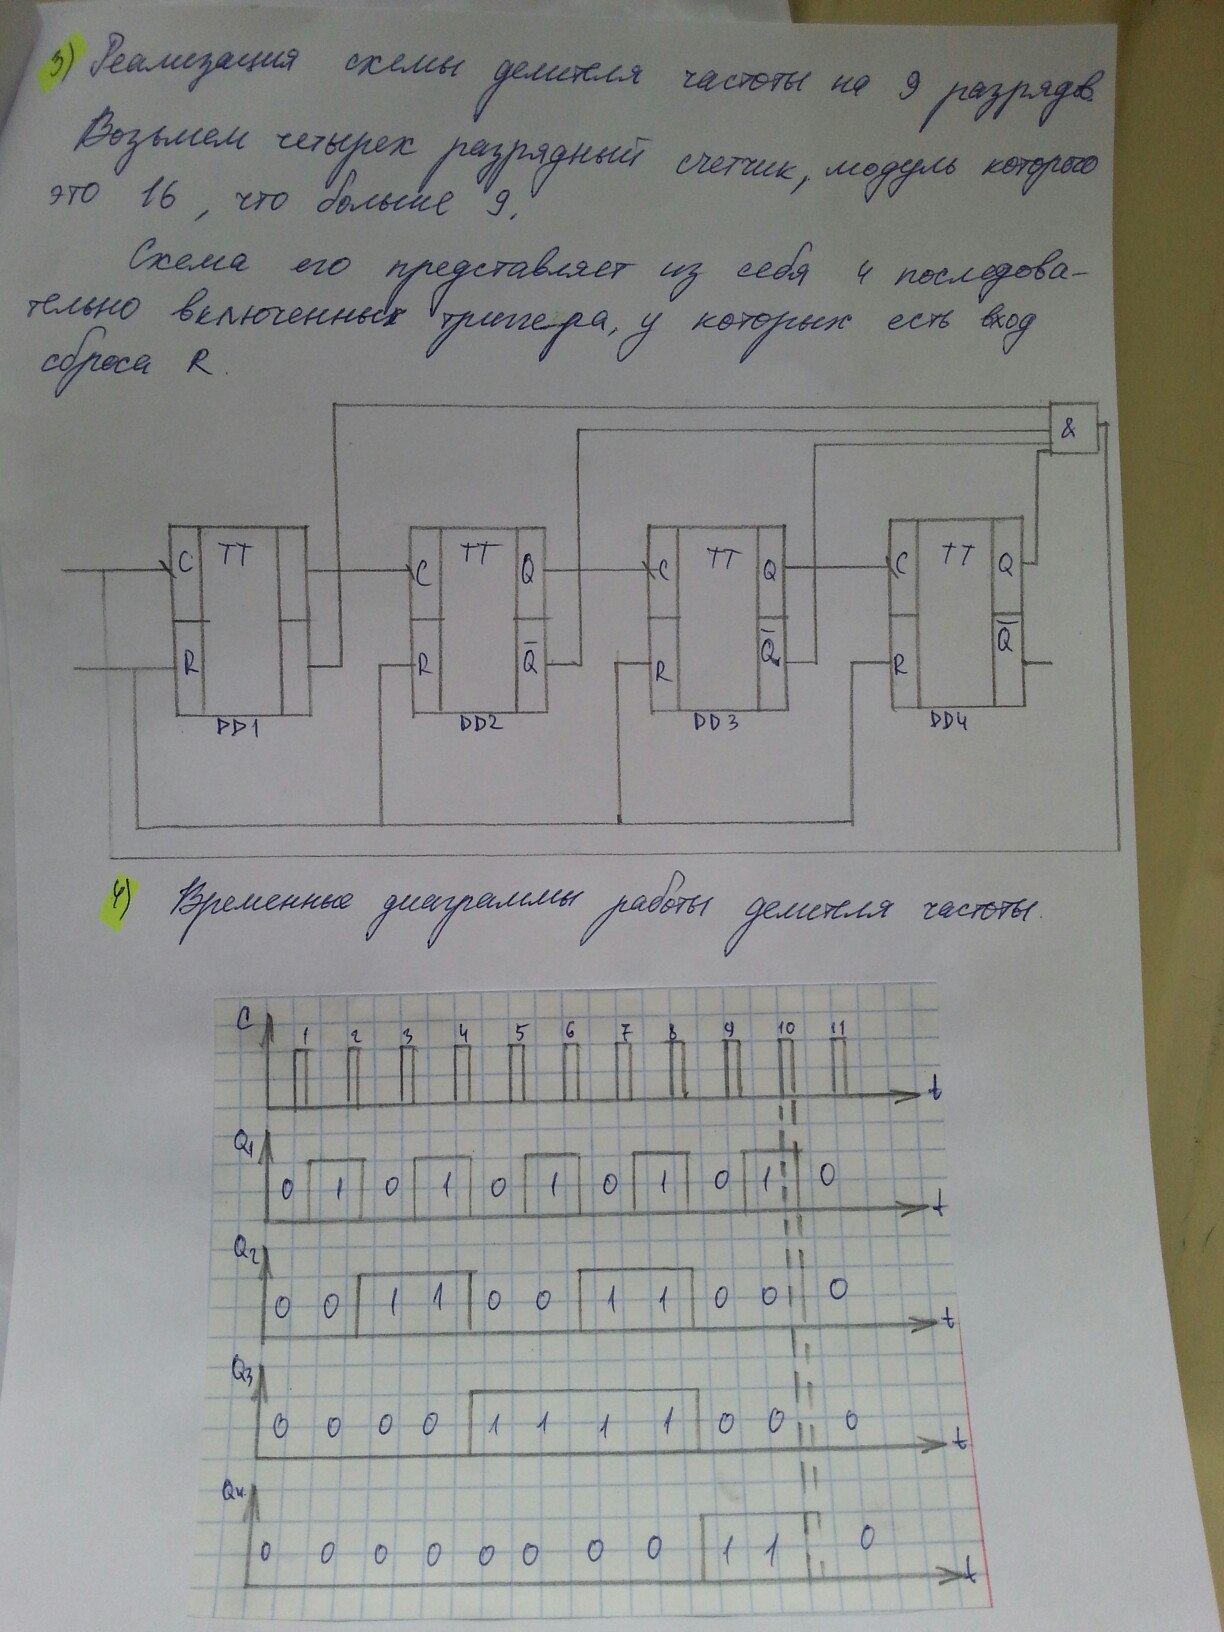 3) Реализация схемы делителя частоты на 9 разрядов.
Возьмем четырех разрядный счетчик, модуль которого
это 16, что больше 9.
Схема его представляет из себя 4 последова-
тельно включенных тригера, у которых есть вход
сброса R.
&
C TT
C TT Q
C TT Q
C TT Q
R
R Q̅
R Q̅
R Q̅
DD1
DD2
DD3
DD4
4) Временные диаграммы работы делителя частоты.
C 1 2 3 4 5 6 7 8 9 10 11 t
Q1 0 1 0 1 0 1 0 1 0 1 0 t
Q2 0 0 1 1 0 0 1 1 0 0 0 t
Q3 0 0 0 0 1 1 1 1 0 0 0 t
Q4 0 0 0 0 0 0 0 0 1 1 0 t